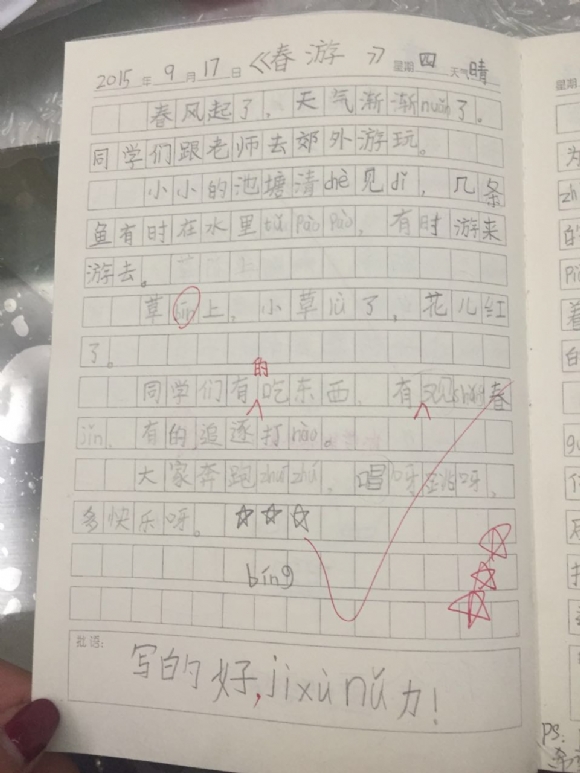 2015年9月17日 《春游》 星期四 天气晴
春风起了，天气渐渐nuǎn了。
同学们跟老师去郊外游玩。
小小的池塘清chè见dǐ，几条
鱼有时在水里tǔ pào pào，有时游来
游去。
草jīn上，小草lǜ了，花儿红
了。
的
同学们有吃东西，有 春
jǐn，有的追逐打nào。
大家奔跑zhuī zhú，唱呀 呀，
多快乐呀。☆☆☆
bīng
批语：
写的好，jì xù nǔ力！
星期
为
zh
的
着
PS: